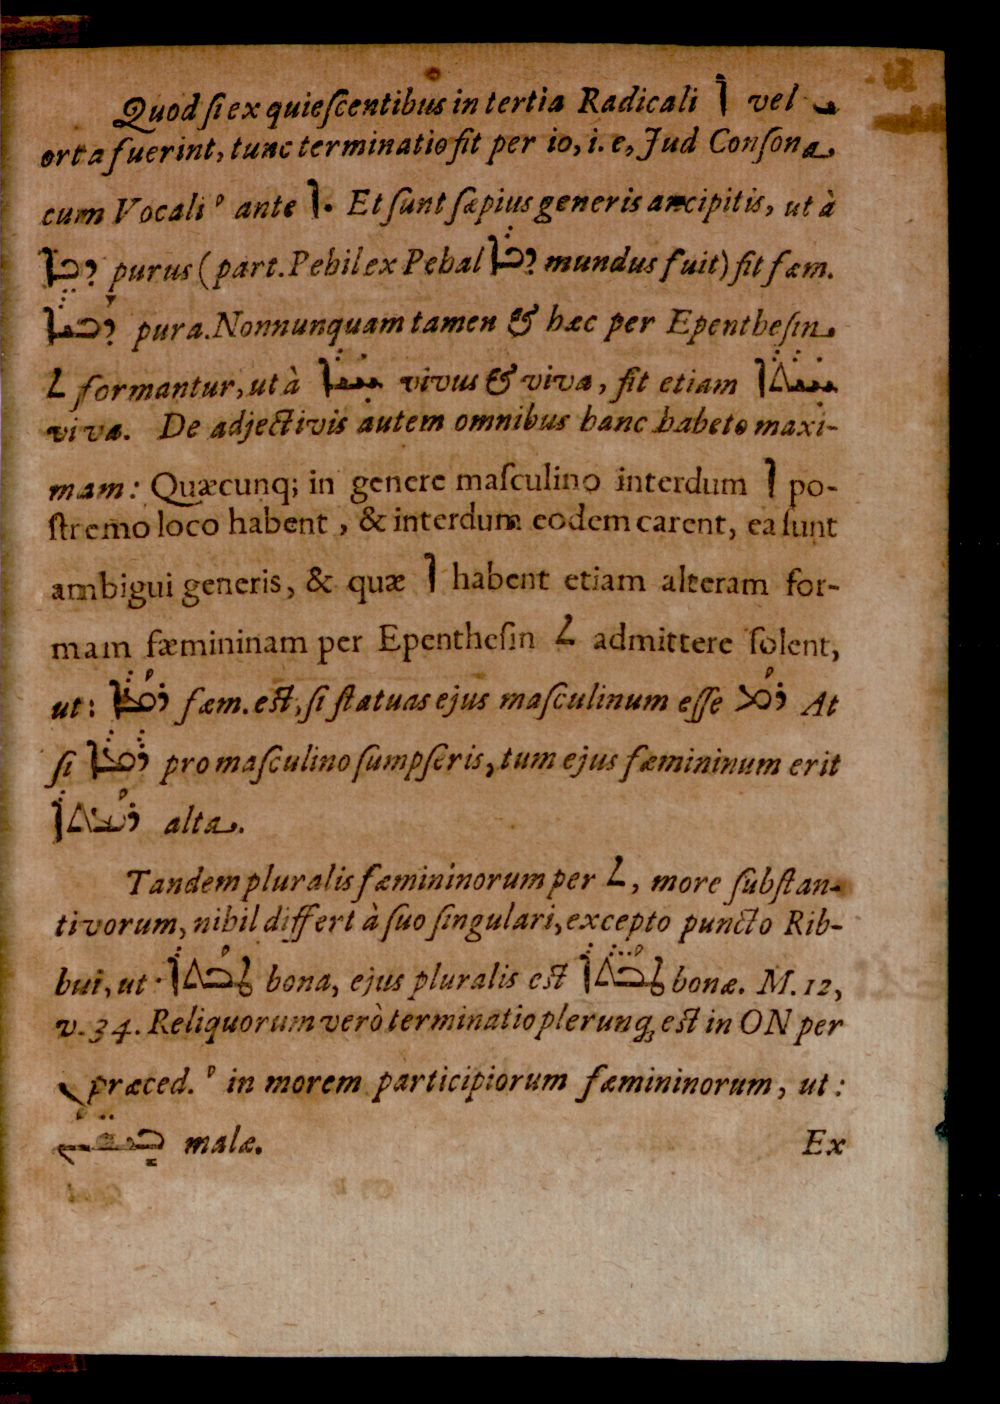 Quod ſi ex quieſcentibus in tertia Radicali ܐ vel ܝ
orta fuerint, tunc terminatio fit per io, i. e, Jud Conſona,
cum Vocali ante ܐ. Et ſunt ſæpius generis ancipitis, ut à
ܕܟܐ purus (part. Pehil ex Pehal ܕܟܐ mundus fuit) fit fæm.
ܕܟܝܐ pura. Nonnunquam tamen & hæc per Epentheſin
ܬ formantur, ut à ܚܝܐ vivus & viva, fit etiam ܚܝܬܐ
viva. De adjectivis autem omnibus hanc habeto maxi-
mam: Quæcunq; in genere maſculino interdum ܐ po-
ſtremo loco habent, & interdum eodem carent, ea ſunt
ambigui generis, & quæ ܐ habent etiam alteram for-
mam fæmininam per Epentheſin ܬ admittere ſolent,
ut: ܪܡܐ fæm. eſt, ſi ſtatuas ejus maſculinum eſſe ܪܡ At
ſi ܪܡܐ pro maſculino ſumpſeris, tum ejus fæmininum erit
ܪܡܬܐ alta.
Tandem pluralis fæmininorum per ܬ, more ſubſtan-
tivorum, nihil differt à ſuo ſingulari, excepto puncto Rib-
bui, ut ܛܒܬܐ bona, ejus pluralis eſt ܛܒܬܐ bonæ. M. 12,
v. 34. Reliquorum verò terminatio plerunq; eſt in ON per
ܢ præced. in morem participiorum fæmininorum, ut:
ܒܝܫܢ malæ. Ex